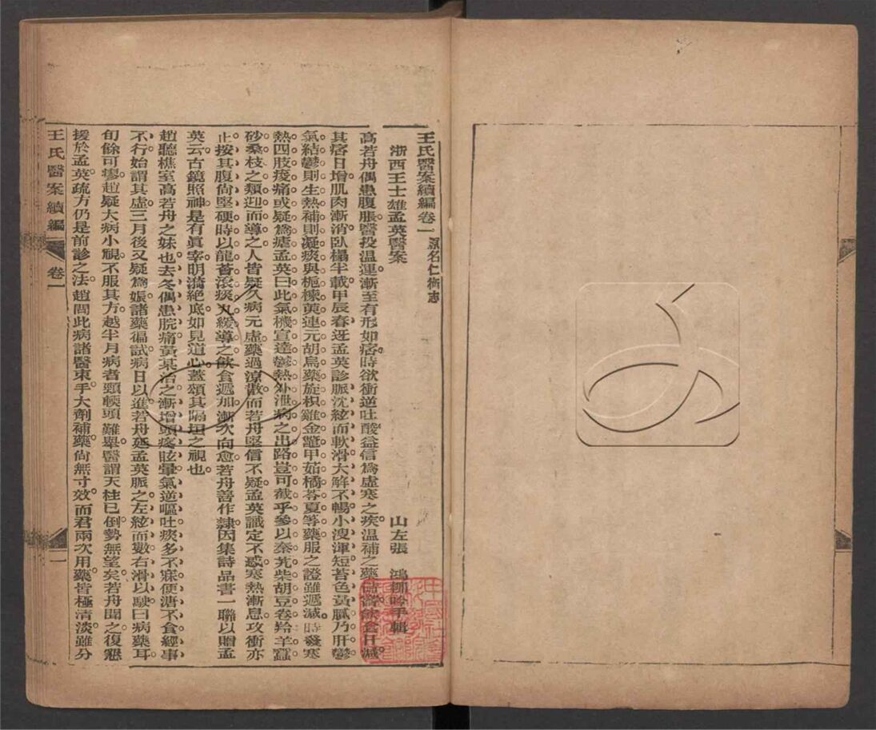 王氏醫案續編卷一 原名仁術志
浙西王士雄孟英醫案 山左張鴻 輯
高若舟偶患腹脹醫投溫運漸至有形如痞時欲衝逆吐酸益信爲虛寒之疾溫補之藥 飲食日減
其痞日增肌肉漸消臥榻半載甲辰春迓孟英診脈沈絃而軟滑大解不暢小溲渾短苔色黃膩乃肝鬱
氣結鬱則生熱補則凝痰與梔楝黃連元胡烏藥旋枳雞金鱉甲茹橘苓夏等藥服之證雖遞減時發寒
熱四肢痠痛或疑爲瘧孟英曰此氣機宣達鬱熱外泄病之出路豈可截乎參以秦艽柴胡豆卷羚羊蠶
砂桑枝之類迎而導之人皆疑久病元虛藥過涼散而若舟堅信不疑孟英識定不惑寒熱漸息攻衝亦
止按其腹尚堅硬時以龍薈滾痰丸緩導之飲食遞加漸次向愈若舟善作隸因集詩品書一聯以贈孟
英云古鏡照神是有眞宰明漪絕底如見道心蓋頌其隔垣之視也
趙聽樵室高若舟之妹也去冬偶患脘痛黃某治之漸增頭疼眩暈氣逆嘔吐痰多不寐便溏不食經事
不行始謂其虛三月後又疑爲娠諸藥徧試病日以進若舟延孟英脈之左絃而數右滑以駛曰病藥耳
旬餘可瘳趙疑大病小視不服其方越半月病者頸軟頭難舉醫謂天柱已倒勢無望矣若舟聞之復懇
援於孟英疏方仍是前診之法趙問此病諸醫束手大劑補藥尚無寸效而君兩次用藥皆極清淡雖分
王氏醫案續編 卷一 一